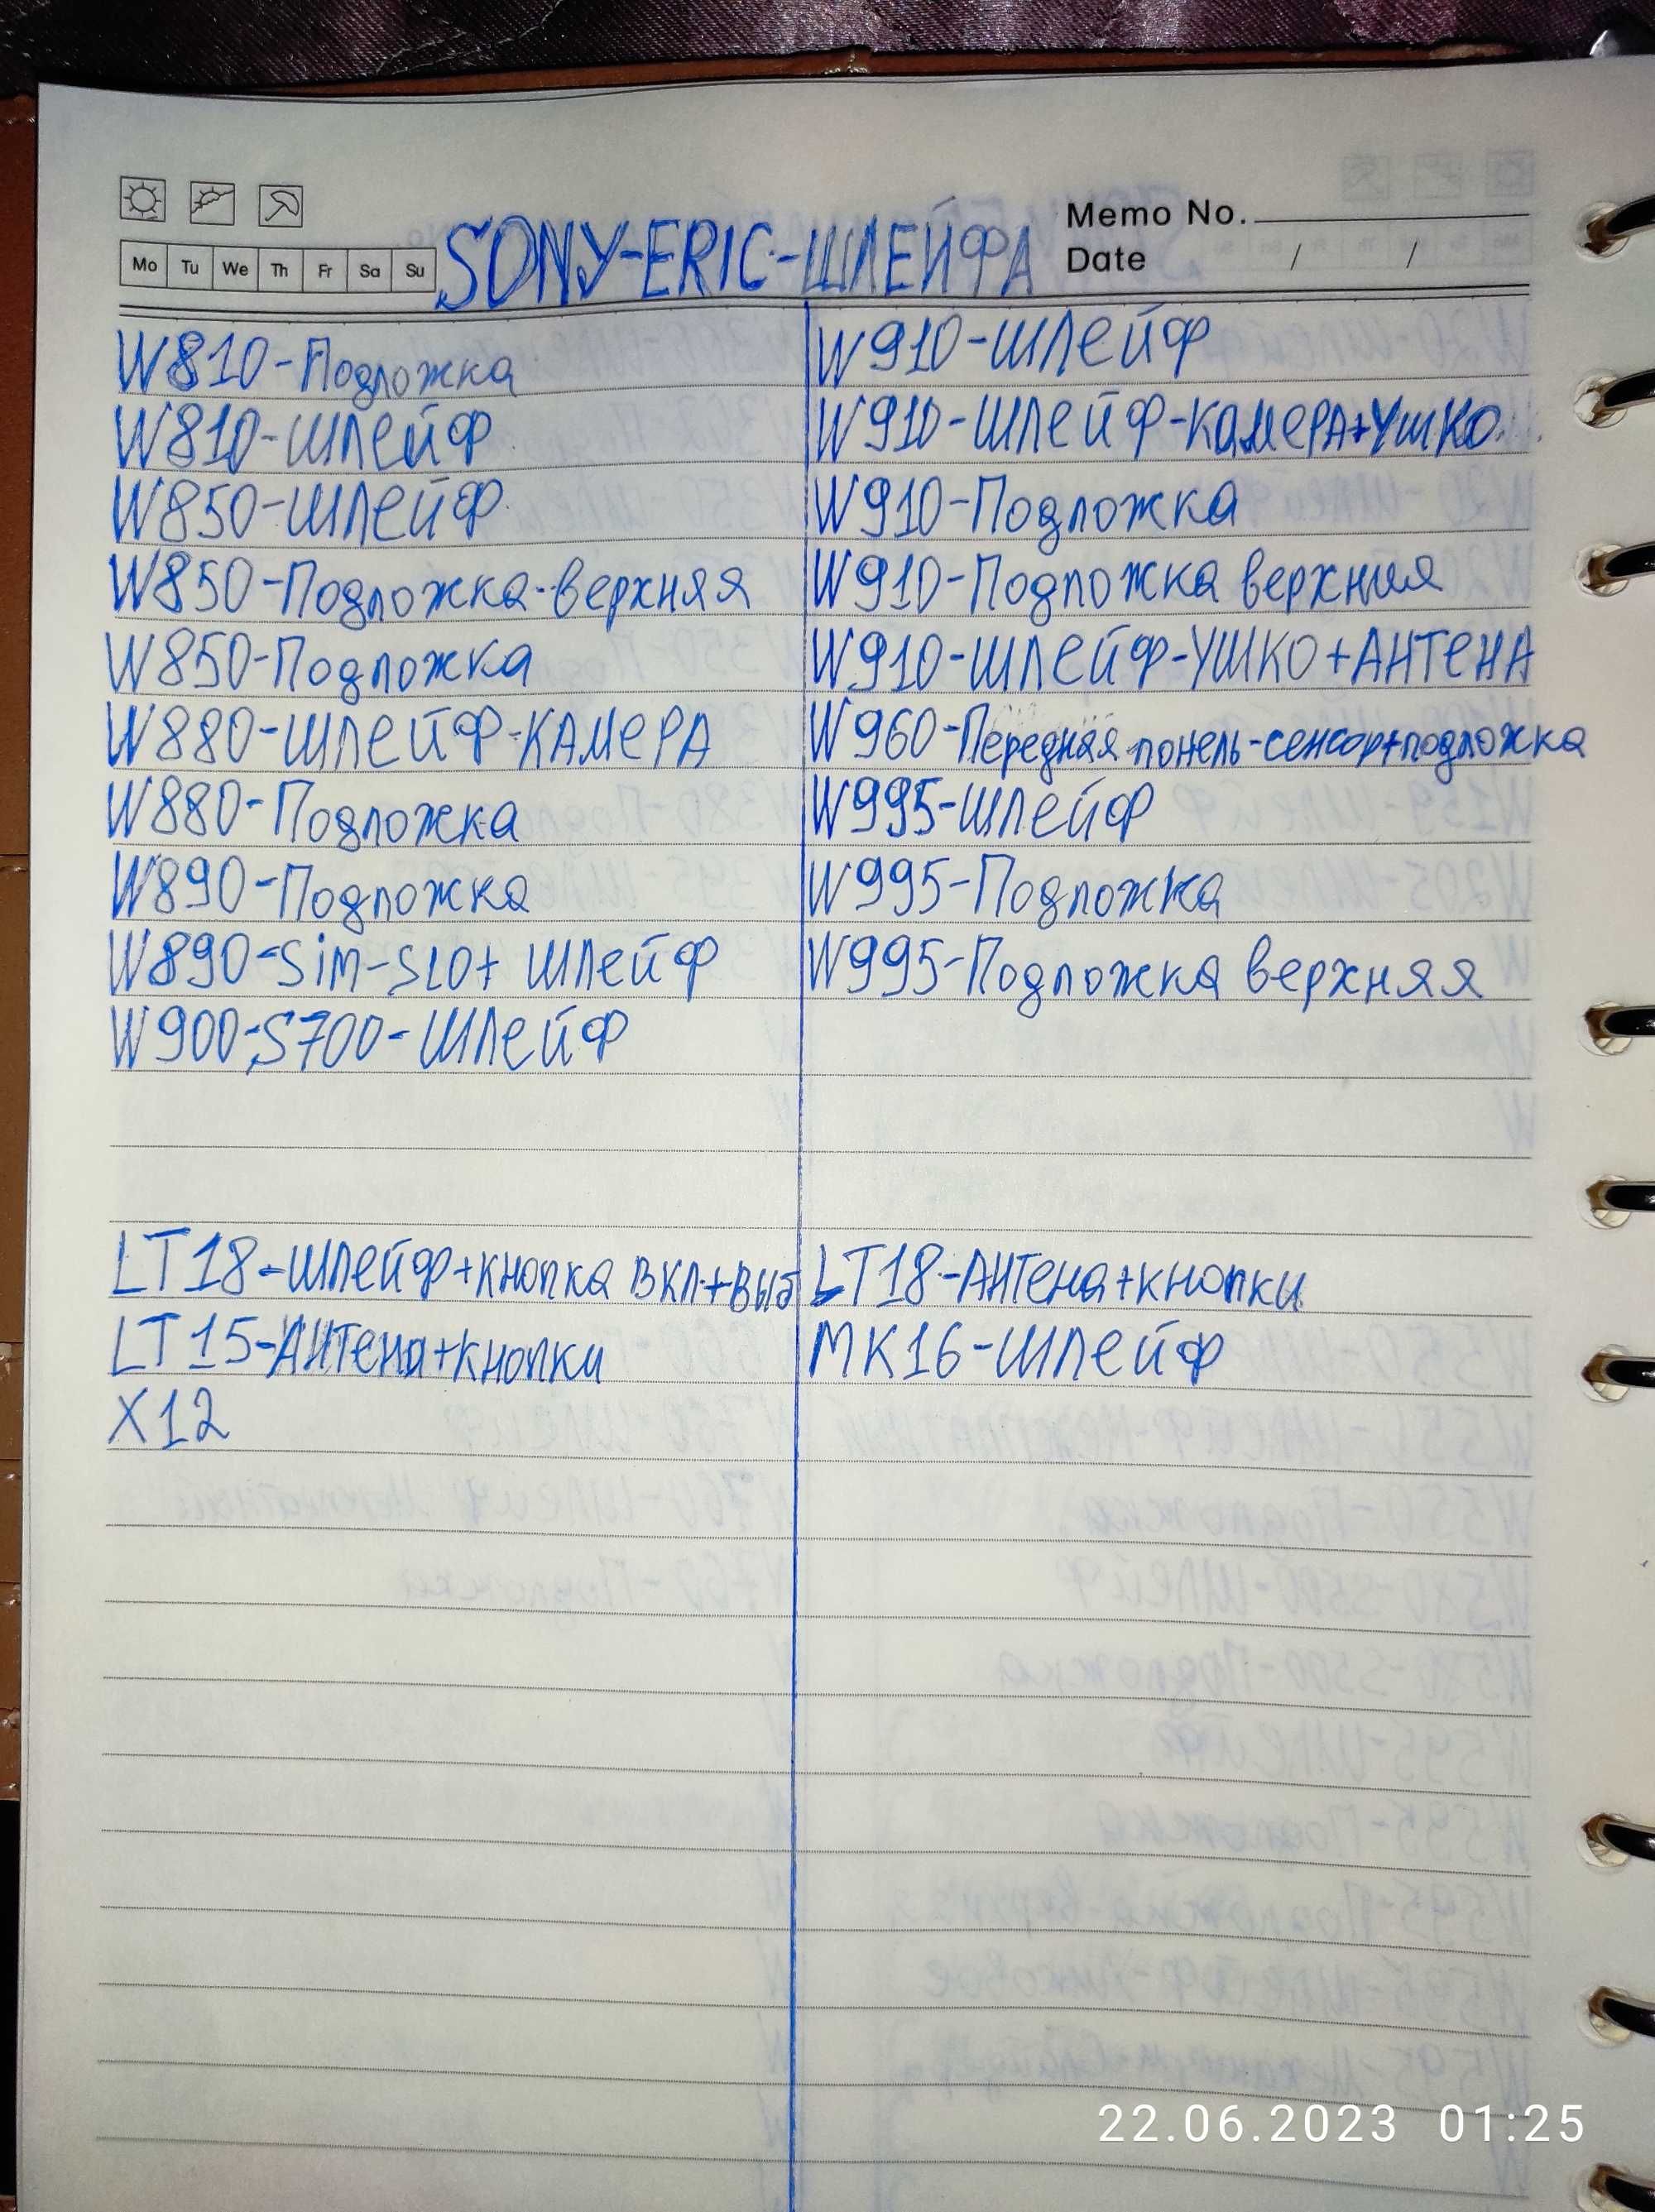 Memo No.
Mo Tu We Th Fr Sa Su
SONY-ERIC-ШЛЕЙФА
Date / /
W810-Подложка
W810-шлейф
W850-шлейф
W850-Подложка-верхняя
W850-Подложка
W880-шлейф-КАМЕРА
W880-Подложка
W890-Подложка
W890-Sim-SLO+ шлейф
W900-S700-шлейф
LT18-шлейф+кнопка вкл+выб
LT15-АНТена+кнопки
X12
W910-шлейф
W910-шлейф-камеРА+Ушко
W910-Подложка
W910-Подложка верхняя
W910-шлейф-УШКО+АНТЕНА
W960-Передняя понель-сенсор+подложка
W995-шлейф
W995-Подложка
W995-Подложка верхняя
LT18-АНТена+кнопки
МК16-шлейф
22.06.2023 01:25